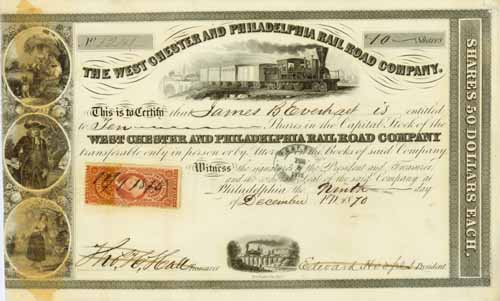 No
10 Shares
THE WEST CHESTER AND PHILADELPHIA RAIL ROAD COMPANY.
This is to Certify that James B Everhart is entitled
to Ten Shares in the Capital Stock of the
WEST CHESTER AND PHILADELPHIA RAIL ROAD COMPANY
transferable only in person or by Attorney on the books of said Company
Witness the signatures of the President and Treasurer
and the Seal of the said Company at
Philadelphia the Ninth day
of December 1870
Thos. H. Hall Treasurer
Edward Hoopes President
SHARES 50 DOLLARS EACH.